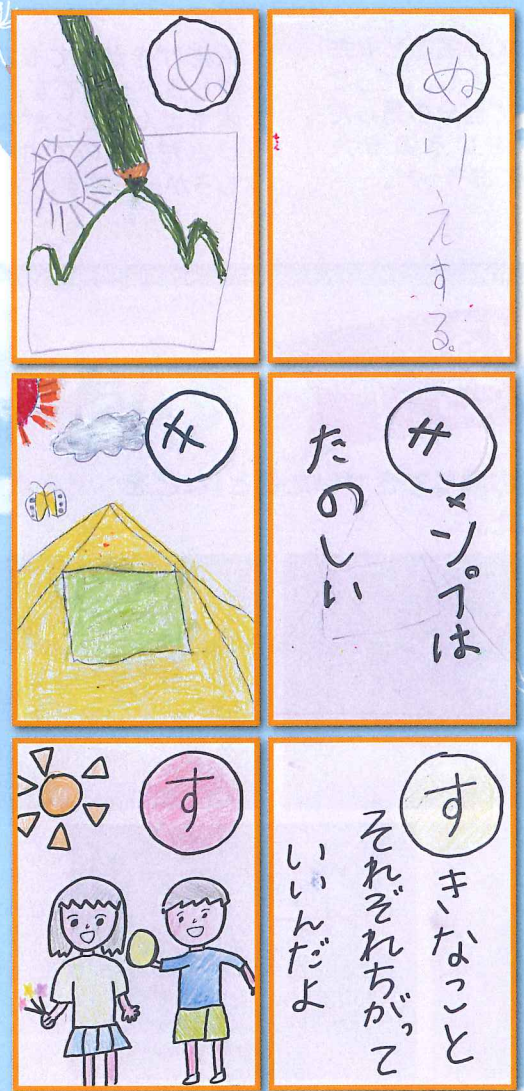 ぬ
ぬりえする。
キ
キャンプは
たのしい
す
すきなこと
それぞれちがって
いいんだよ